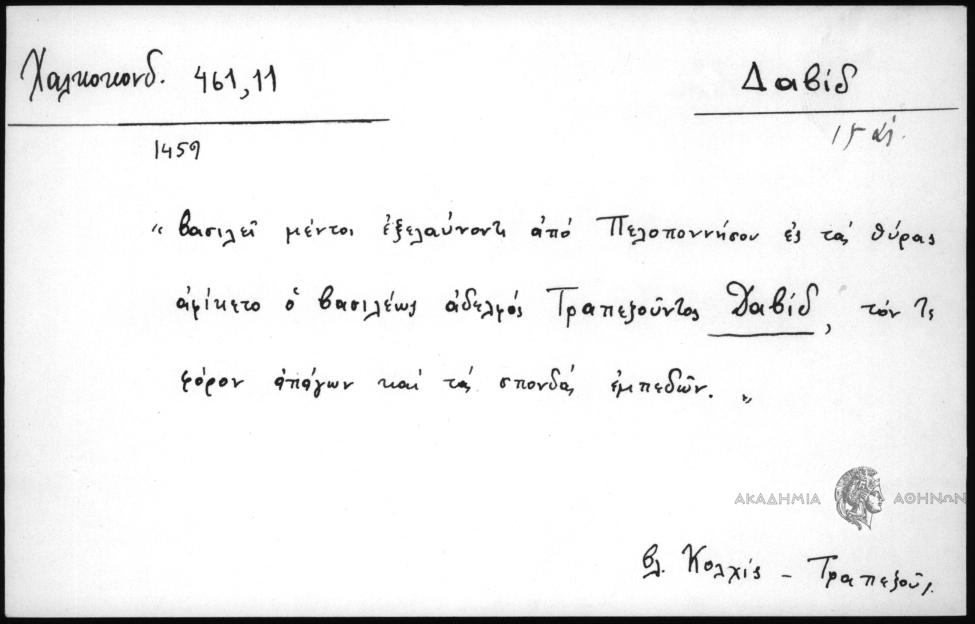 Χαλκοκονδ. 461,11
Δαβίδ
1459
"βασιλεῖ μέντοι ἐξελαύνοντι ἀπό Πελοποννήσου ἐς τάς θύρας
ἀφίκετο ὁ βασιλέως ἀδελφός Τραπεζοῦντος Δαβίδ, τόν τε
φόρον ἀπάγων καί τάς σπονδάς ἐμπεδῶν."
ΑΚΑΔΗΜΙΑ ΑΘΗΝΩΝ
βλ. Κολχίς - Τραπεζοῦς.